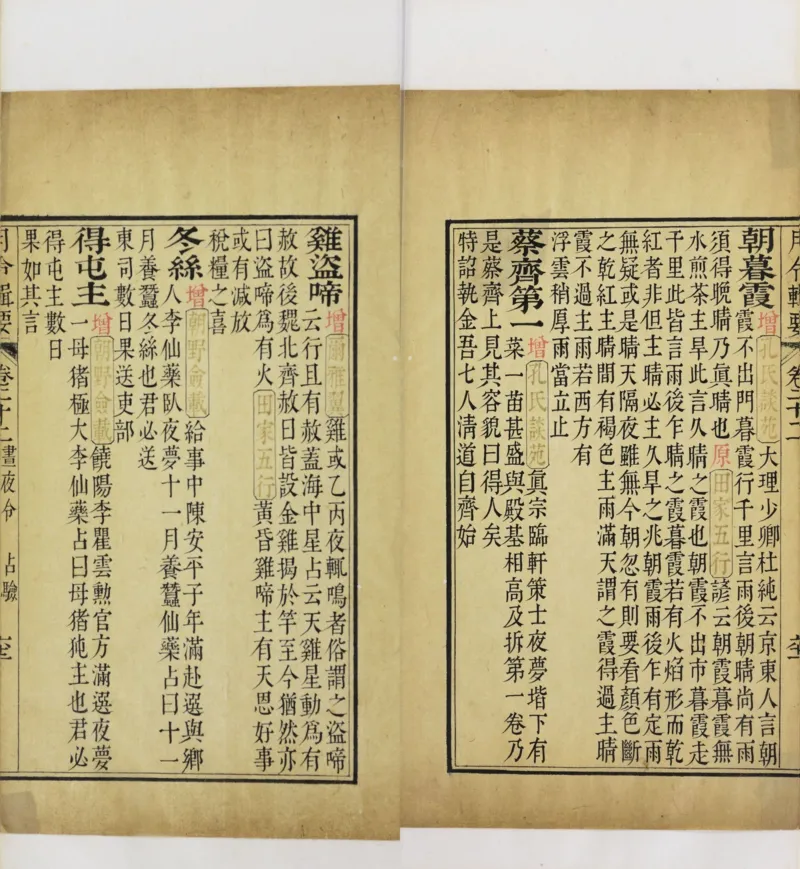 月令輯要 卷二十二
朝暮霞 增孔氏談苑大理少卿杜純云京東人言朝
霞不出門暮霞行千里言雨後朝晴尚有雨
須得晚晴乃眞晴也原田家五行諺云朝霞暮霞無
水煎茶主旱此言久晴之霞也朝霞不出市暮霞走
千里此皆言雨後乍晴之霞暮霞若有火焰形而乾
紅者非但主晴必主久旱之兆朝霞雨後乍有定雨
無疑或是晴天隔夜雖無今朝忽有則要看顏色斷
之乾紅主晴間有褐色主雨滿天謂之霞得過主晴
霞不過主雨若西方有
浮雲稍厚雨當立止
蔡齊第一 增孔氏談苑眞宗臨軒策士夜夢堦下有
菜一苗甚盛與殿基相高及拆第一卷乃
是蔡齊上見其容貌曰得人矣
特詔執金吾七人淸道自齊始
雞盜啼 增爾雅翼雞或乙丙夜輒鳴者俗謂之盜啼
云行且有赦蓋海中星占云天雞星動爲有
赦故後魏北齊赦日皆設金雞揭於竿至今猶然亦
曰盜啼爲有火田家五行黃昏雞啼主有天恩好事
或有減放
稅糧之喜
冬絲 增朝野僉載給事中陳安平子年滿赴選與鄉
人李仙藥臥夜夢十一月養蠶仙藥占曰十一
月養蠶冬絲也君必送
東司數日果送吏部
得屯主 增朝野僉載饒陽李瞿雲勳官方滿選夜夢
一母猪極大李仙藥占曰母猪㹠主也君必
得屯主數日
果如其言
月令輯要 卷二十二 晝夜令 占驗